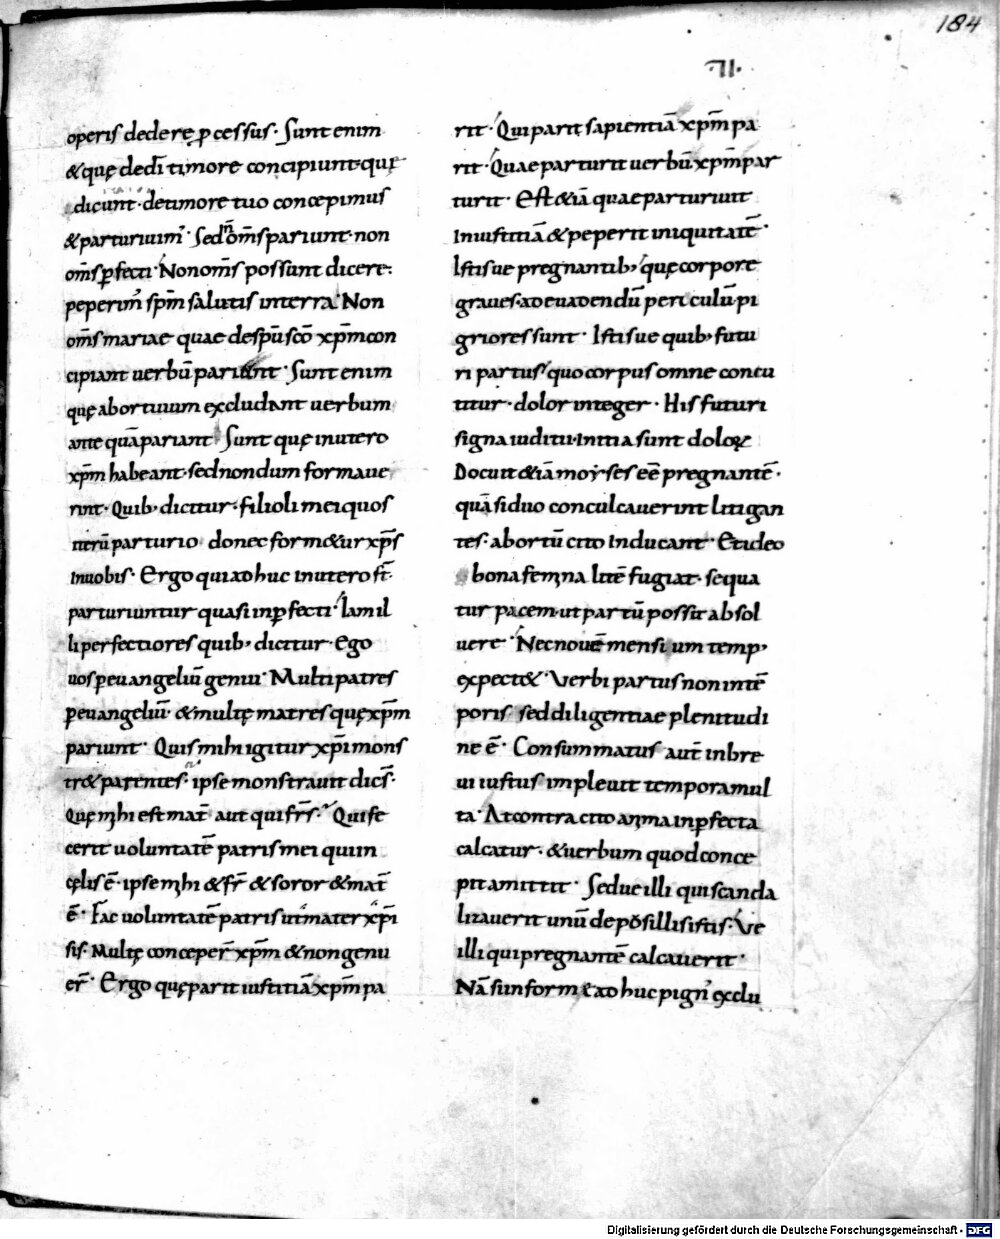 184
·VI·
operis dederẹ p̱cessus · Sunt enim
&quę dedī timore concipiunt quę
dicunt · detimore tuo concepimus
&parturiuim᾽ · Sed n̄ om̄s pariunt · non
om̄s ꝑfecti · Non om̄s possunt dicere ·
peperim᾽ sp̄m salutis interra · Non
om̄s mariae quae desp̄usc̄o xp̄m con
cipiant uerbū pariunt · Sunt enim
quę abortiuum excludant uerbum
ante quā pariant · Sunt quę inutero
xp̄m habeant · sed nondum formaue
rint · Quib; dicitur · filioli mei quos
iterū parturio donec form&ur xp̄s
Inuobis · Ergo qui adhuc inutero st̄ ·
parturiuntur quasi inꝑfecti · Iam il
li perfectiores quib; dicitur · Ego
uos ꝑeuangeliū genui · Multi patres
ꝑeuangeliū · &multę matres quę xp̄m
pariunt · Quis mihi igitur xp̄i mons
tr& parentes · ipse monstrauit dics̄ ·
Quę mihi est mat̄ aut qui fr̄s · Qui fe
cerit uoluntatē patris mei qui in
cęlis ē · ipse mihi &fr̄ &soror &mat̄
ē · Fac uoluntatē patris ut mater xp̄i
sis · Multę conceper̄ xp̄m &non genu
er̄ · Ergo quę parit iustitiā xp̄m pa
rit · Qui parit sapientiā xp̄m pa
rit · Quae parturit uerbū xp̄m par
turit · Est &iā quae parturiuit
Iniustitiā &peperit iniquitatē ·
Istis ue pregnantib; quę corpore
graues · ad euadendū periculū pi
griores sunt · Istis ue quib; futu
ri partus quo corpus omne concu
titur · dolor integer · His futuri
signa iuditii · Initia sunt doloꝝ
Docuit &iā moyses eē pregnantē ·
quā si duo conculcauerint litigan
tes · abortū cito Inducant · Et ideo
bona femina litē fugiat · sequa
tur pacem · ut partū possit absol
uere · Nec nouē mensium temp;
expect& · Verbi partus non intē
poris sed diligentiae plenitudi
ne ē · Consummatus aut̄ inbre
ui iustus impleuit tempora mul
ta · At contra cito anima inꝑfecta
calcatur · &uerbum quod conce
pit amittit · Sed ue illi qui scanda
lizauerit unū de pusillis istis · Ve
illi qui pregnantē calcauerit ·
Nā sunform & adhuc pign᾽ exclu
Digitalisierung gefördert durch die Deutsche Forschungsgemeinschaft - DFG